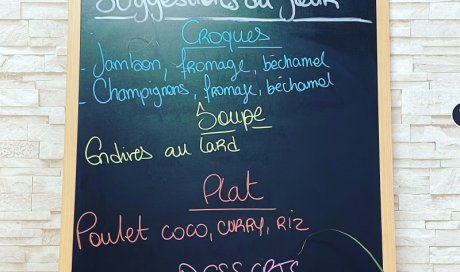 Suggestions du jour
Croques
- Jambon, fromage, béchamel
- Champignons, fromage, béchamel
Soupe
Endives au lard
Plat
Poulet coco, curry, riz
Desserts